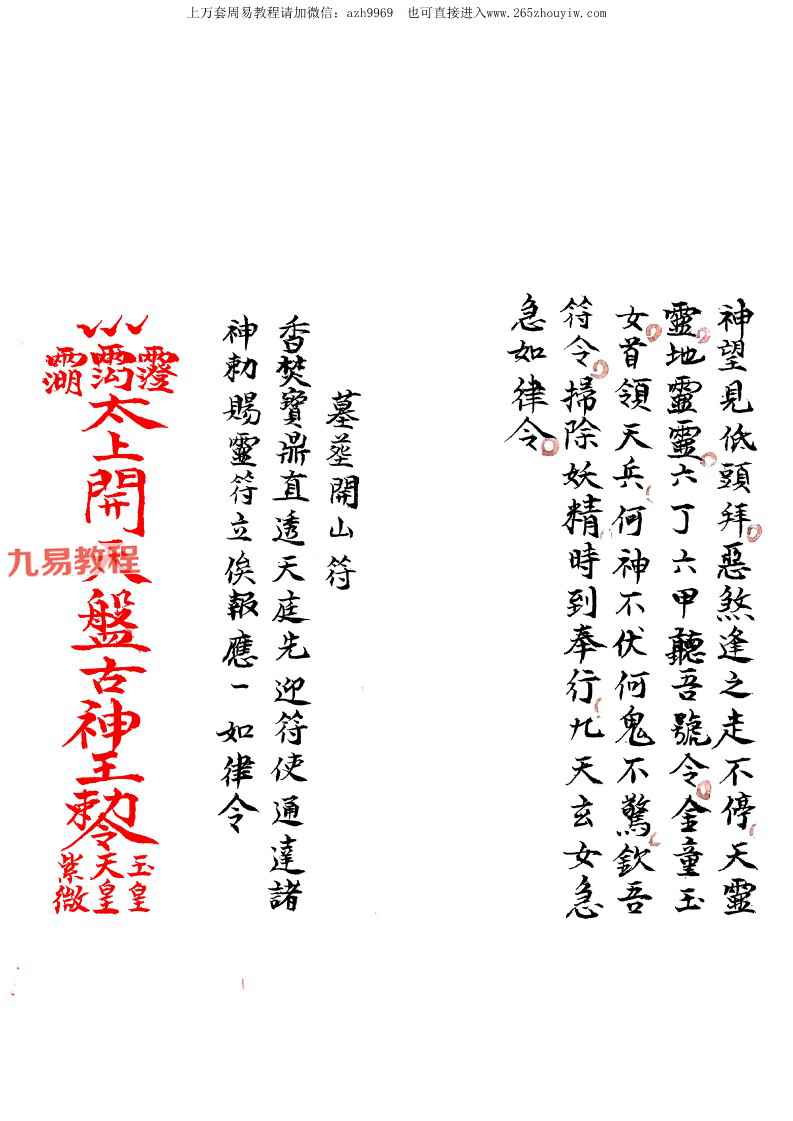 上万套周易教程请加微信：azh9969　也可直接进入www.265zhouyiw.com
神望見低頭拜惡煞逢之走不停天靈
靈地靈靈六丁六甲聽吾號令金童玉
女首領天兵何神不伏何鬼不驚欽吾
符令掃除妖精時到奉行九天玄女急
急如律令
墓塋開山符
香焚寶鼎直透天庭先迎符使通達諸
神勅賜靈符立俟報應一如律令
太上開天盤古神王勅令
玉皇
天皇
紫微
九易教程